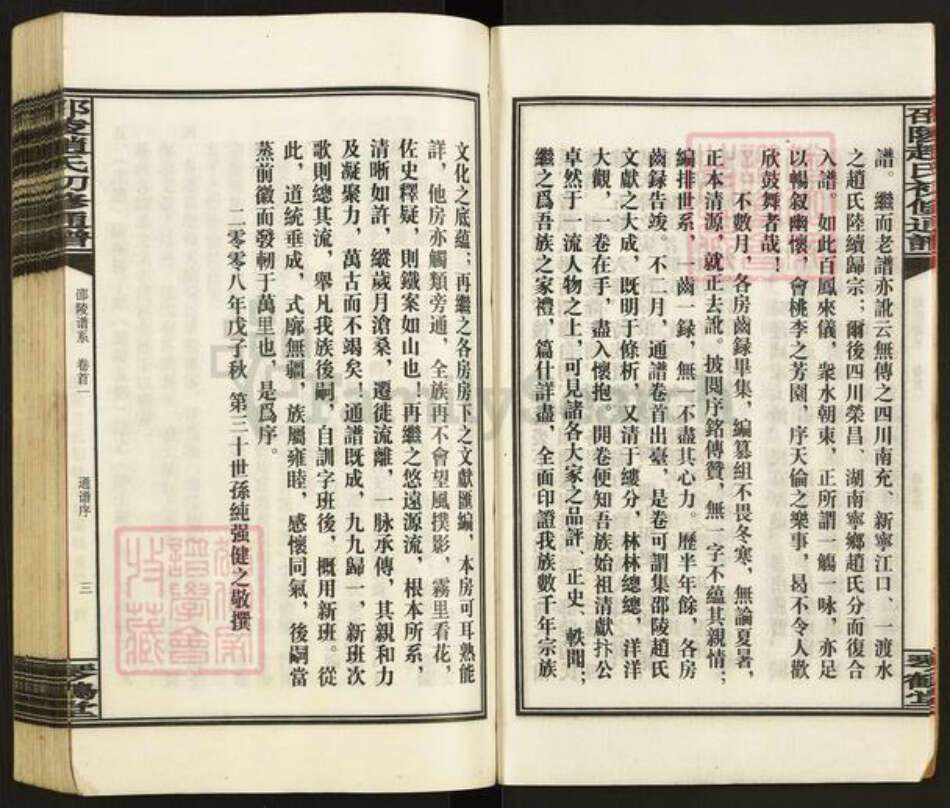 譜。繼而老譜亦訛云無傳之四川南充、新寧江口、一渡水
之趙氏陸續歸宗；爾後四川榮昌、湖南寧鄉趙氏分而復合
入譜。如此百鳳來儀，衆水朝東，正所謂一觴一咏，亦足
以暢叙幽懷，會桃李之芳園，序天倫之樂事，曷不令人歡
欣鼓舞者哉！
不數月，各房齒録畢集，編纂組不畏冬寒，無論夏暑，
正本清源，就正去訛。披閲序銘傳贊，無一字不蘊其親情；
編排世系，一齒一録，無一不盡其心力。歷半年餘，各房
齒録告竣。不二月，通譜卷首出臺，是卷可謂集邵陵趙氏
文獻之大成，既明于條析，又清于縷分，林林總總，洋洋
大觀，一卷在手，盡入懷抱。開卷便知吾族始祖清獻抃公
卓然于一流人物之上，可見諸各大家之品評、正史、軼聞；
繼之爲吾族之家禮，篇什詳盡，全面印證我族數千年宗族
文化之底蘊；再繼之各房房下之文獻匯編，本房可耳熟能
詳，他房亦觸類旁通，全族再不會望風撲影，霧里看花，
佐史釋疑，則鐵案如山也！再繼之悠遠源流，根本所系，
清晰如許，縱歲月滄桑，遷徙流離，一脉承傳，其親和力
及凝聚力，萬古而不竭矣！通譜既成，九九歸一，新班次
歌則總其流，舉凡我族後嗣，自訓字班後，概用新班。從
此，道統垂成，式廓無疆，族屬雍睦，感懷同氣，後嗣當
蒸前徽而發軔于萬里也，是爲序。
二零零八年戊子秋 第三十世孫純强健之敬撰
邵陵趙氏初修通譜
邵陵谱系 卷首一
通谱序
三
琴鶴堂